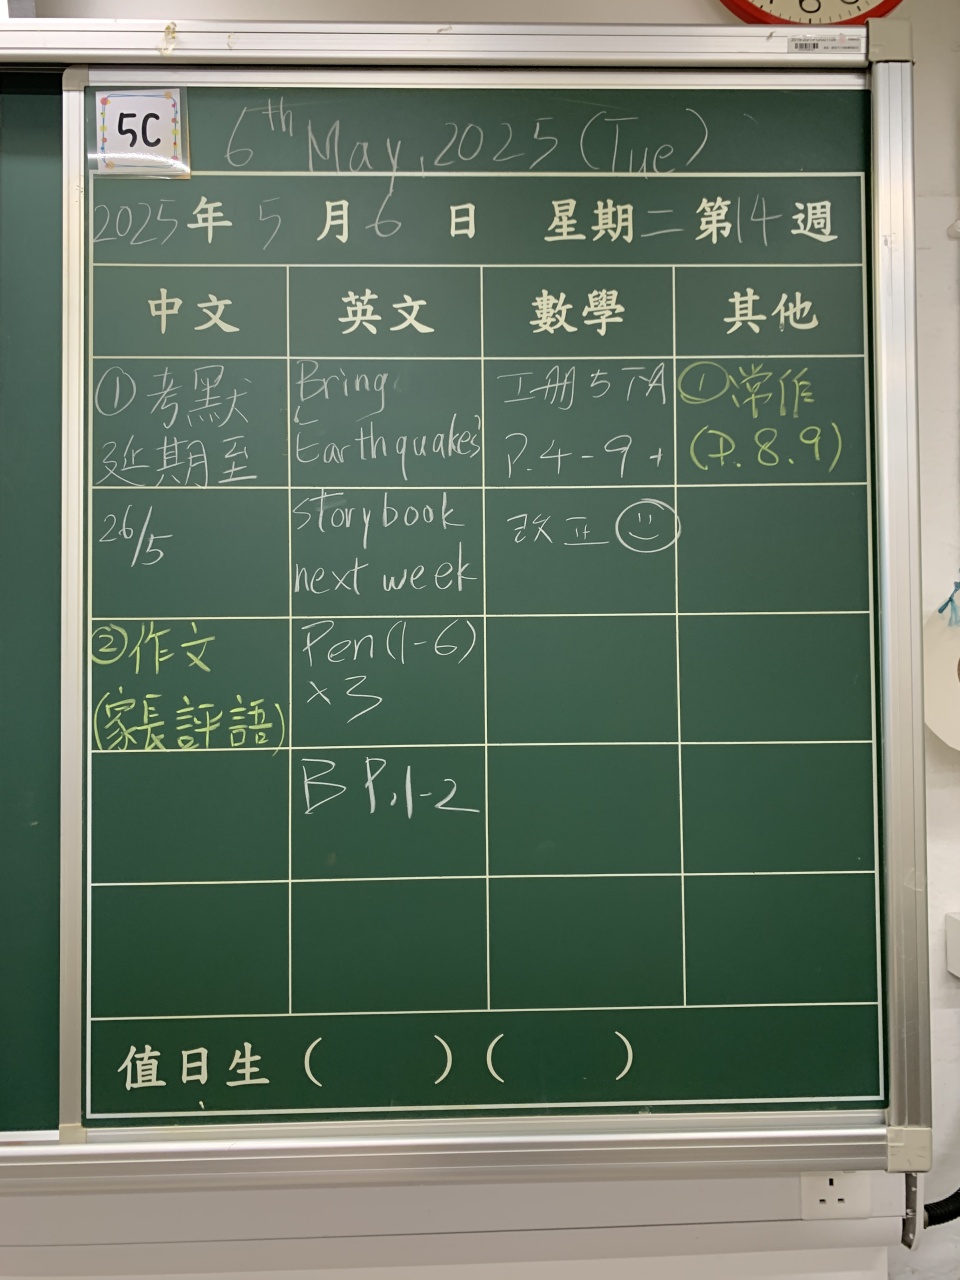 5C
6th May, 2025 (Tue)
2025年 5 月 6 日 星期二 第14週
中文 英文 數學 其他
①考默
延期至
26/5
②作文
(家長評語)
Bring
'Earthquakes'
storybook
next week
Pen(1-6)
×3
B P.1-2
工冊5下A
P.4-9+
改正
①常作
(P.8.9)
值日生 ( ) ( )